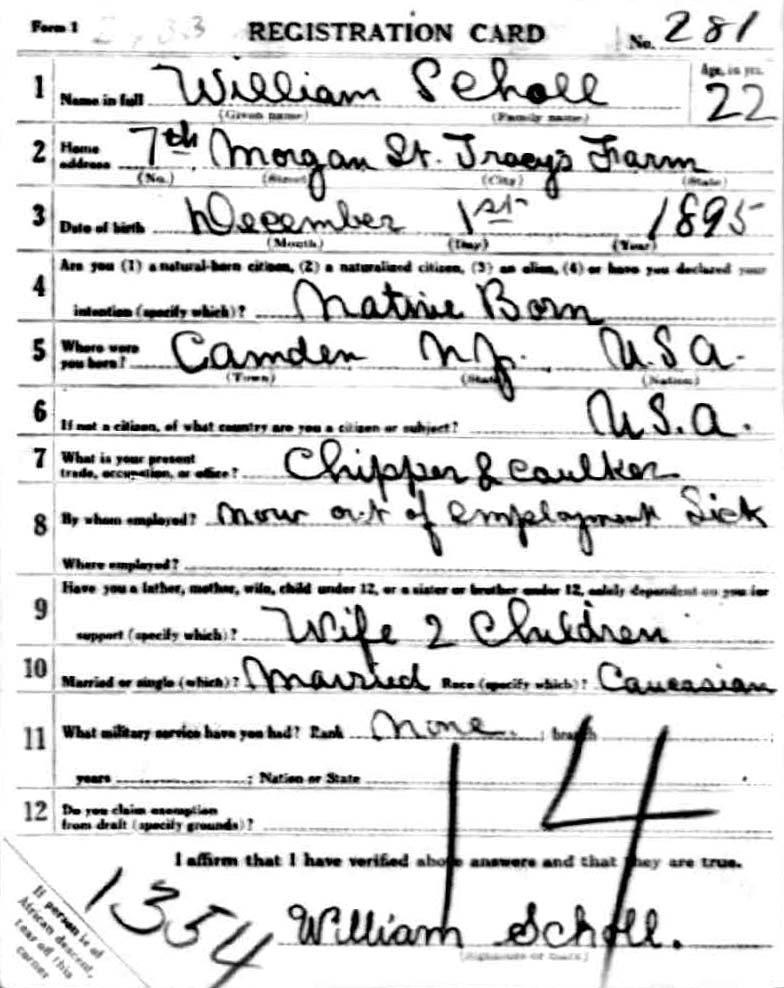 Form 1 2733 REGISTRATION CARD No. 281
1 Name in full William Scholl Age, in yrs. 22
(Given name) (Family name)
2 Home address 7th Morgan St. Tracy's Farm
(No.) (Street) (City) (State)
3 Date of birth December 1st 1895
(Month) (Day) (Year)
4 Are you (1) a natural-born citizen, (2) a naturalized citizen, (3) an alien, (4) or have you declared your
intention (specify which)? Native Born
5 Where were you born? Camden N.J. U.S.A.
(Town) (State) (Nation)
6 If not a citizen, of what country are you a citizen or subject? U.S.A.
7 What is your present trade, occupation, or office? Chipper & Caulker
8 By whom employed? Now out of employment Sick
Where employed?
9 Have you a father, mother, wife, child under 12, or a sister or brother under 12, solely dependent on you for
support (specify which)? Wife 2 Children
10 Married or single (which)? Married Race (specify which)? Caucasian
11 What military service have you had? Rank None. ; branch
years ; Nation or State
12 Do you claim exemption from draft (specify grounds)?
14
I affirm that I have verified above answers and that they are true.
1354 William Scholl.
(Signature or mark)
If person is of
African descent,
tear off this
corner